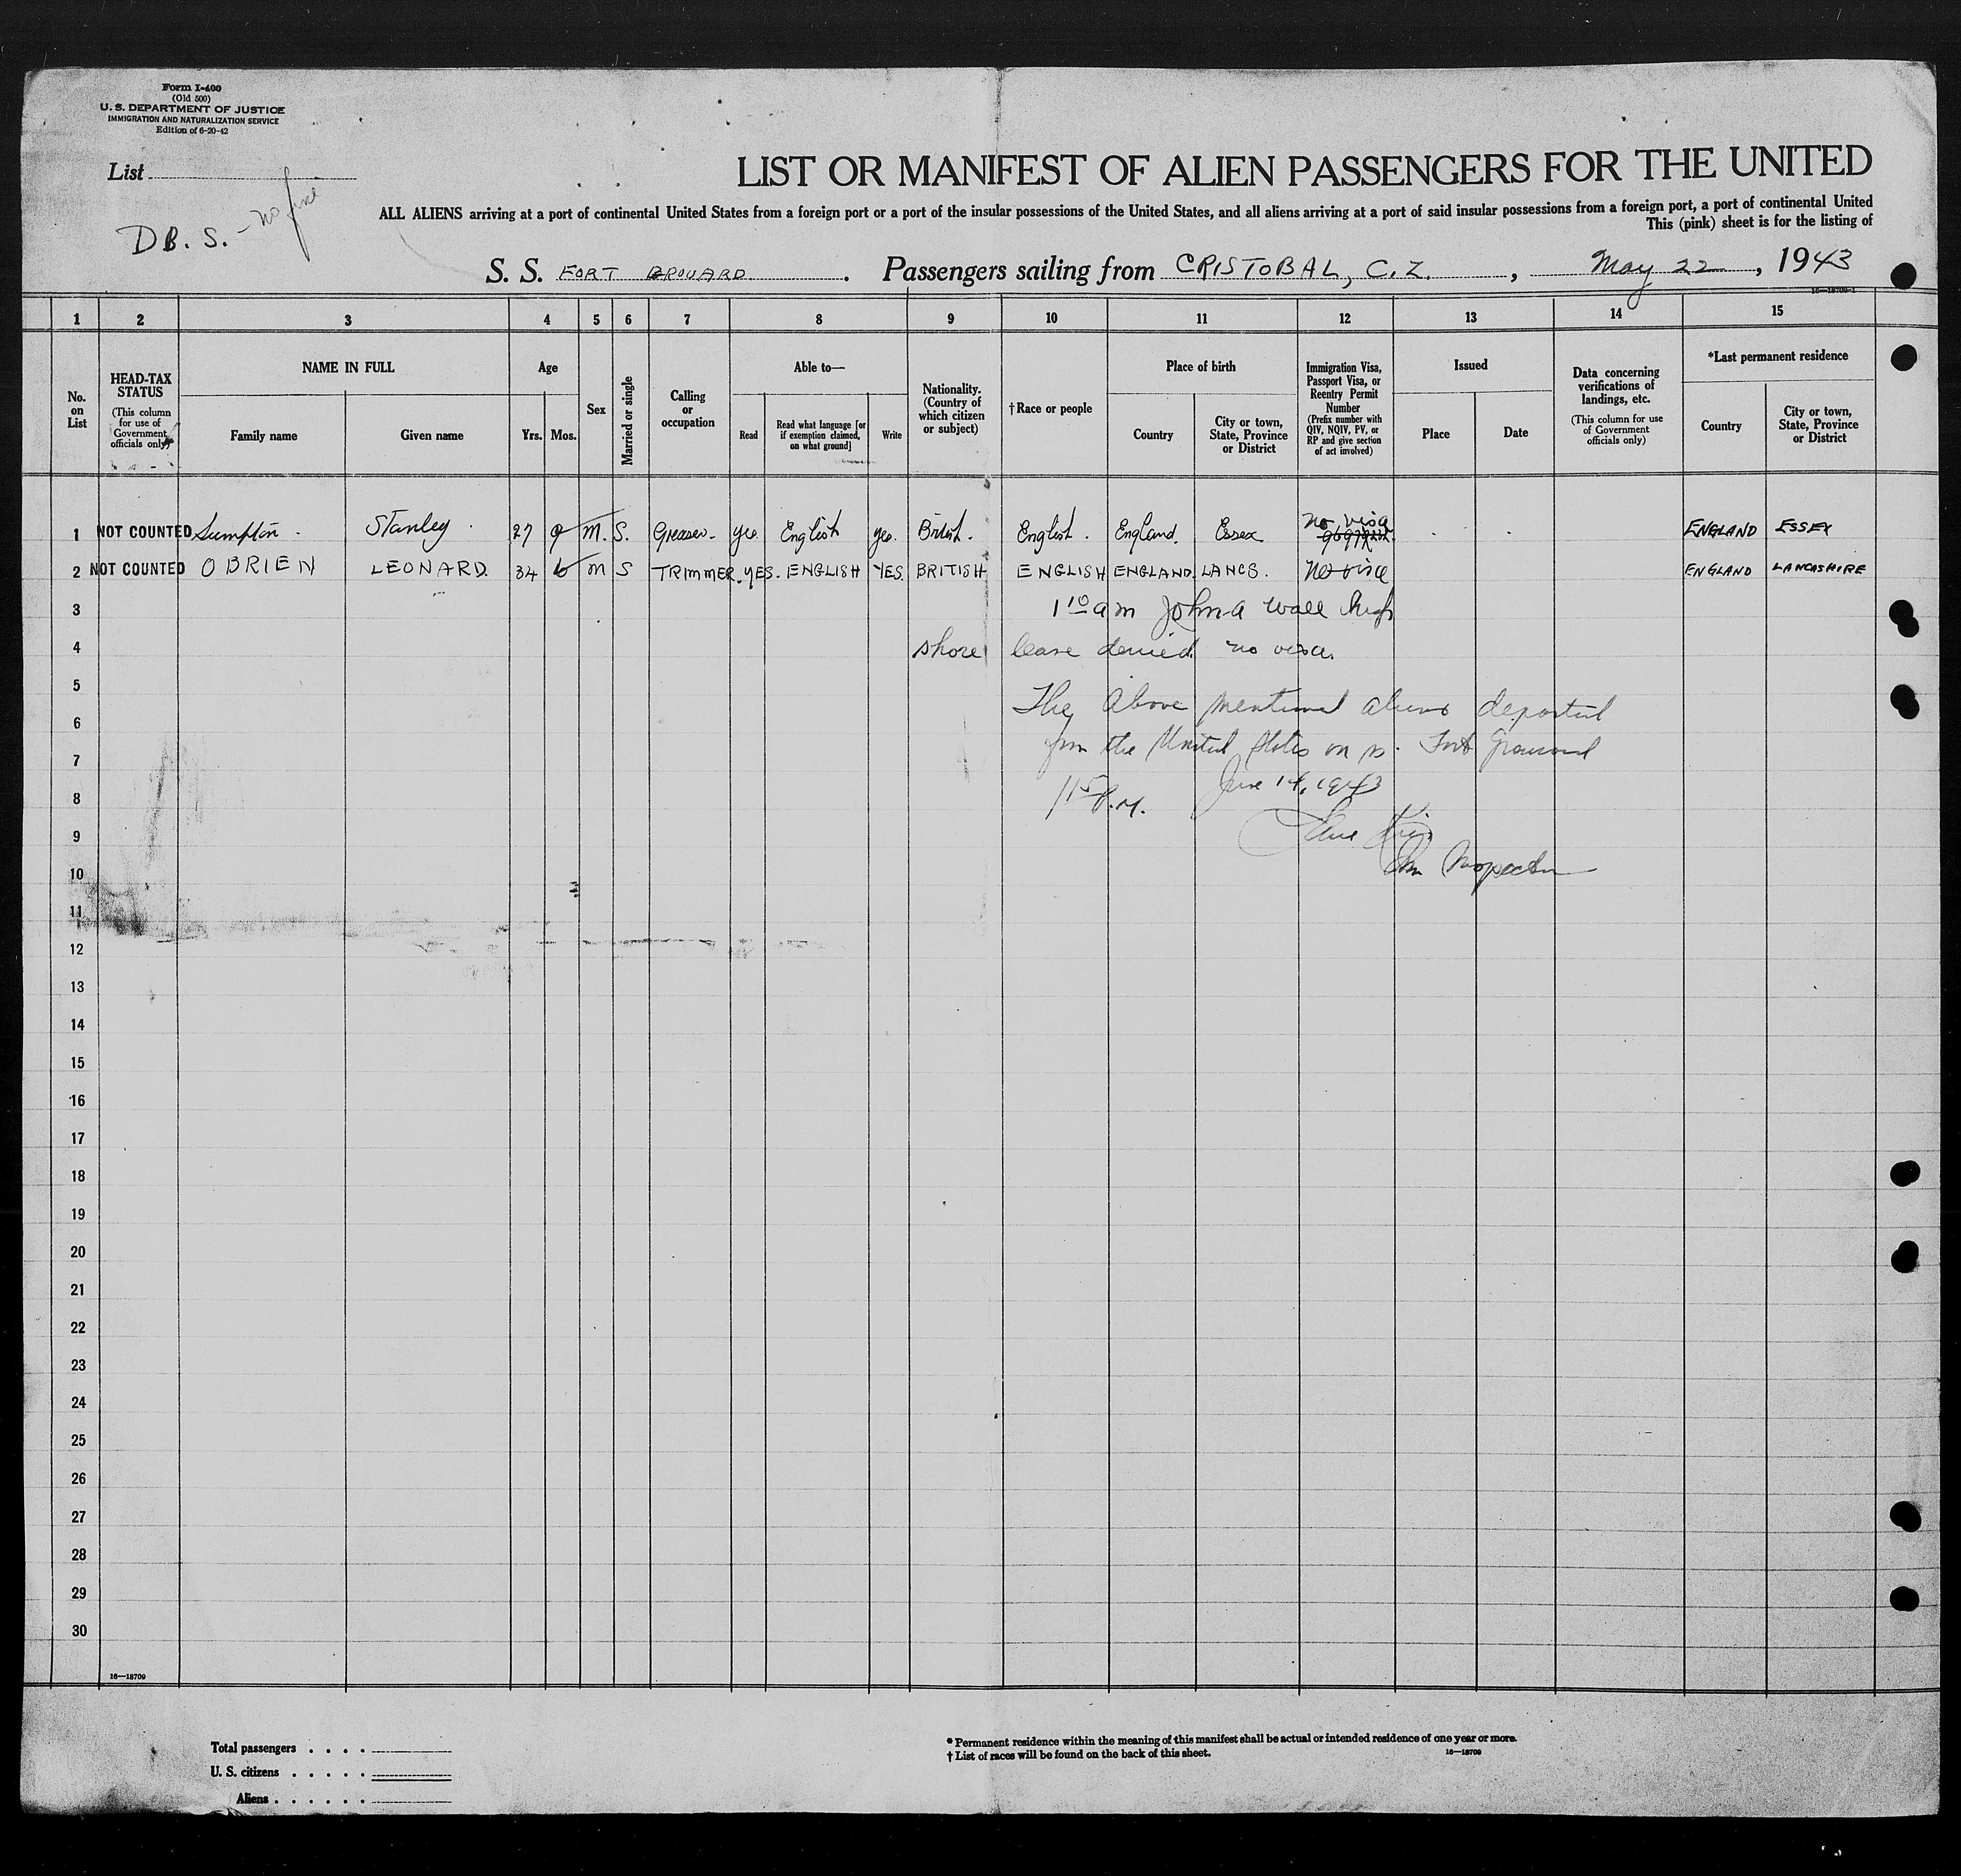 Form I-400
(Old 500)
U. S. DEPARTMENT OF JUSTICE
IMMIGRATION AND NATURALIZATION SERVICE
Edition of 6-20-42
List
D.B.S. - no fine
LIST OR MANIFEST OF ALIEN PASSENGERS FOR THE UNITED
ALL ALIENS arriving at a port of continental United States from a foreign port or a port of the insular possessions of the United States, and all aliens arriving at a port of said insular possessions from a foreign port, a port of continental United
This (pink) sheet is for the listing of
S. S. FORT BROUARD. Passengers sailing from CRISTOBAL, C.Z., May 22, 1943
16—18709-1
1 2 3 4 5 6 7 8 9 10 11 12 13 14 15
No. on List
HEAD-TAX STATUS
(This column for use of Government officials only)
NAME IN FULL
Family name
Given name
Age
Yrs. Mos.
Sex
Married or single
Calling or occupation
Able to—
Read
Read what language [or if exemption claimed, on what ground]
Write
Nationality. (Country of which citizen or subject)
†Race or people
Place of birth
Country
City or town, State, Province or District
Immigration Visa, Passport Visa, or Reentry Permit Number
(Prefix number with QIV, NQIV, PV, or RP and give section of act involved)
Issued
Place
Date
Data concerning verifications of landings, etc.
(This column for use of Government officials only)
*Last permanent residence
Country
City or town, State, Province or District
1 NOT COUNTED Sumpton Stanley 27 9 M. S. Greaser yes English yes British English England Essex no visa ENGLAND ESSEX
2 NOT COUNTED OBRIEN LEONARD 34 6 M S TRIMMER YES. ENGLISH YES BRITISH ENGLISH ENGLAND. LANCS. No visa ENGLAND LANCASHIRE
3 1 10 am John A Wall Insp
4 shore leave denied no visa.
5 The above mentioned aliens deported
6
7 from the United States on ss. Fort
8 1 15 P.M. June 14, 1943
9
10 Imm Inspector
11
12
13
14
15
16
17
18
19
20
21
22
23
24
25
26
27
28
29
30
16—18709
Total passengers . . . .
U. S. citizens . . . . .
Aliens . . . . . .
* Permanent residence within the meaning of this manifest shall be actual or intended residence of one year or more.
† List of races will be found on the back of this sheet.
16—18709